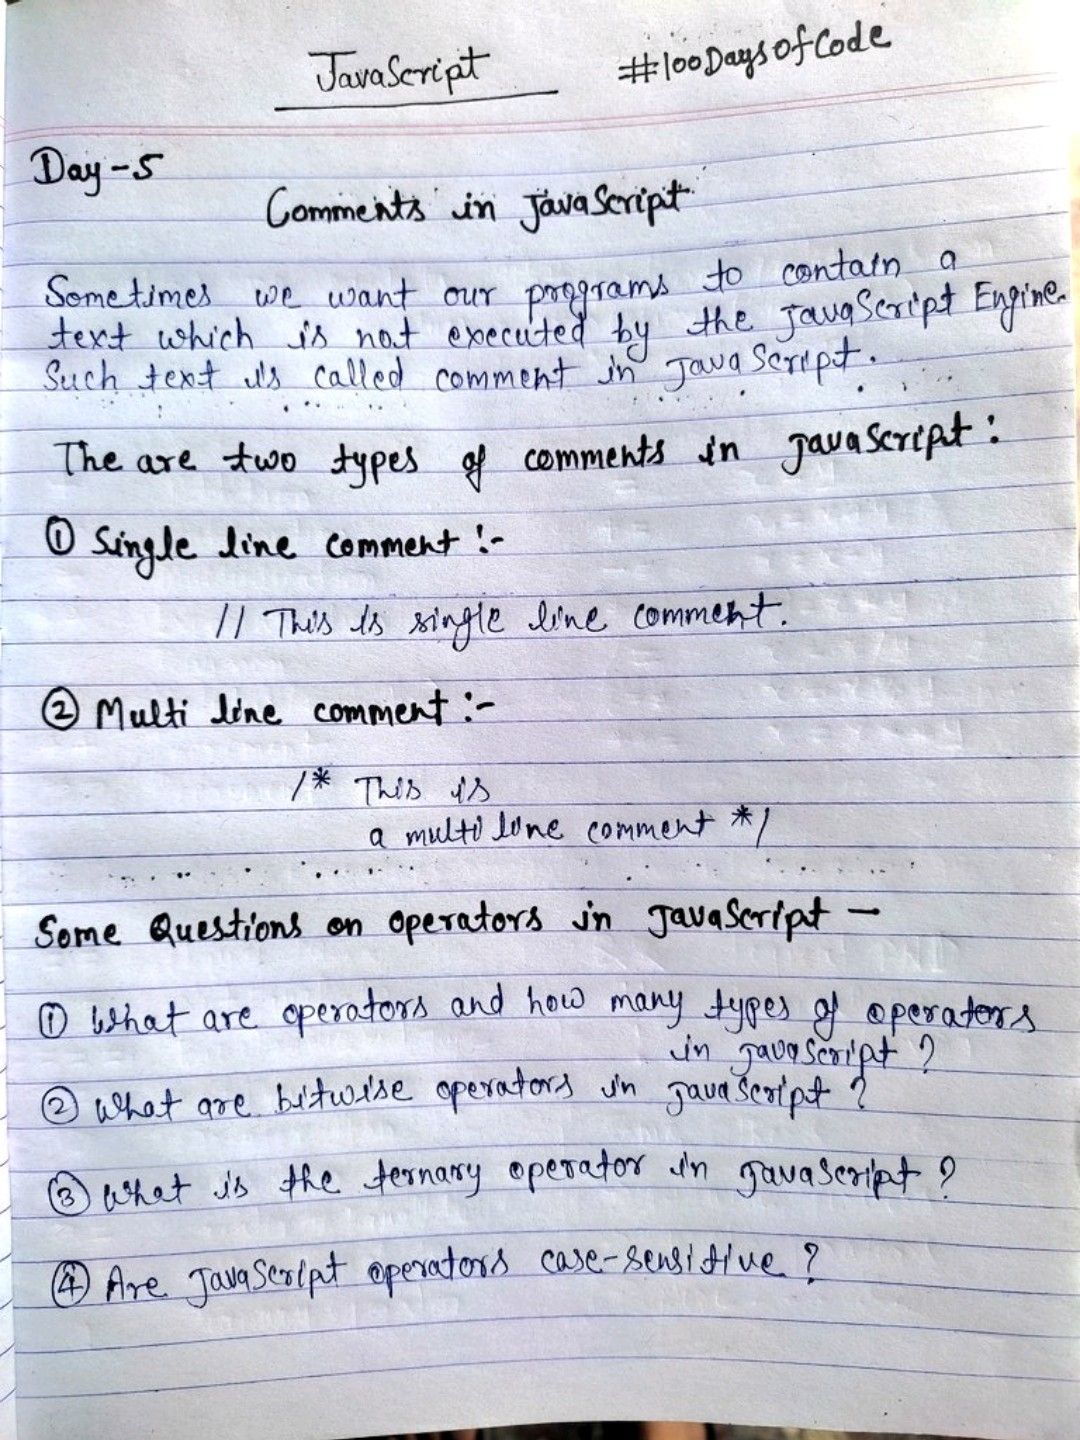 JavaScript #100DaysOfCode
Day-5
Comments in JavaScript
Sometimes we want our programs to contain a
text which is not executed by the JavaScript Engine.
Such text is called comment in JavaScript.
The are two types of comments in JavaScript:
① Single line comment :-
// This is single line comment.
② Multi line comment :-
/* This is
a multi line comment */
Some Questions on operators in JavaScript —
① What are operators and how many types of operators
in JavaScript ?
② What are bitwise operators in JavaScript ?
③ What is the ternary operator in JavaScript ?
④ Are JavaScript operators case-sensitive ?